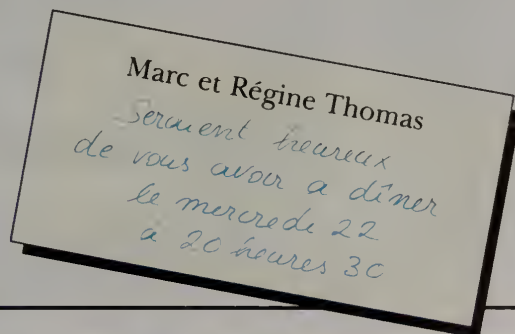 Marc et Régine Thomas
Seraient heureux
de vous avoir a dîner
le mercredi 22
a 20 heures 30